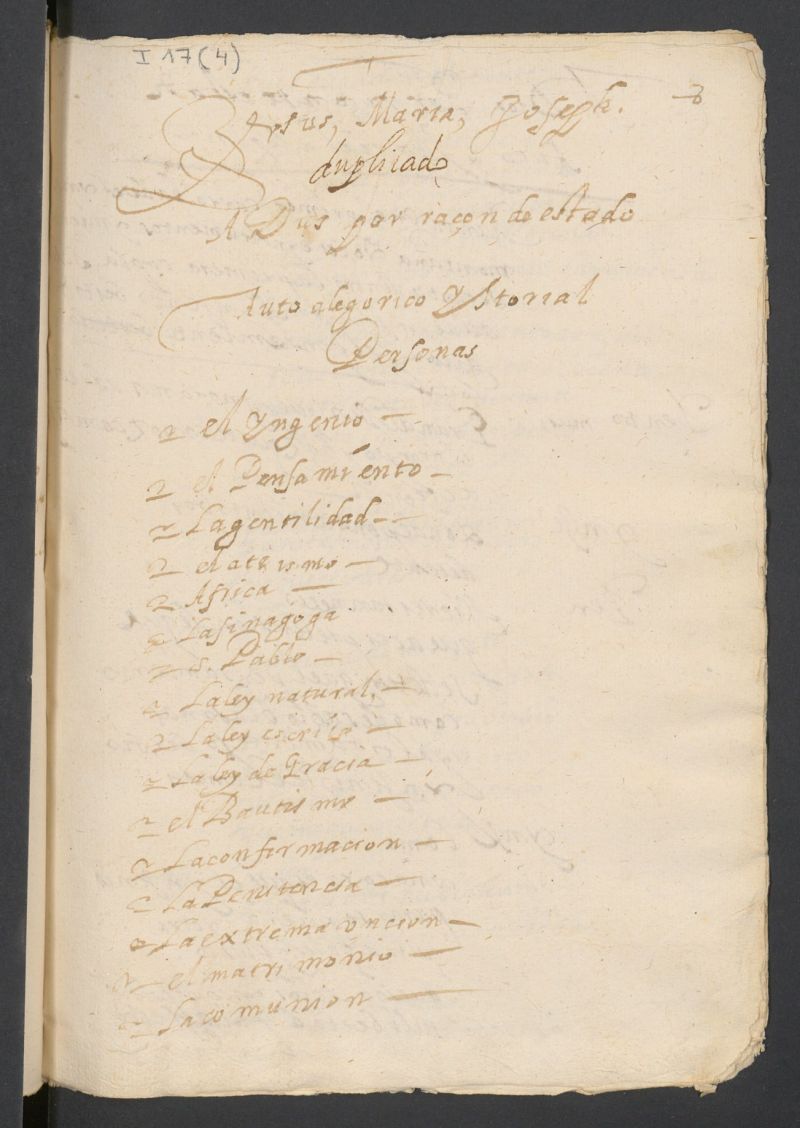 I 17(4)
Jesus, Maria, Joseph.
duplicado
A Dios por raçon de estado
Auto alegorico Ystorial
Personas
2 el Yngenio —
2 el Pensamiento —
2 La gentilidad —
2 el ateismo —
2 Africa —
2 La sinagoga
2 s. Pablo —
2 La ley natural, —
2 La ley escrita —
2 La ley de Gracia —
2 el Bautismo —
2 La confirmacion —
2 La Penitencia —
2 La extrema vncion —
2 el matrimonio —
2 La comunion —